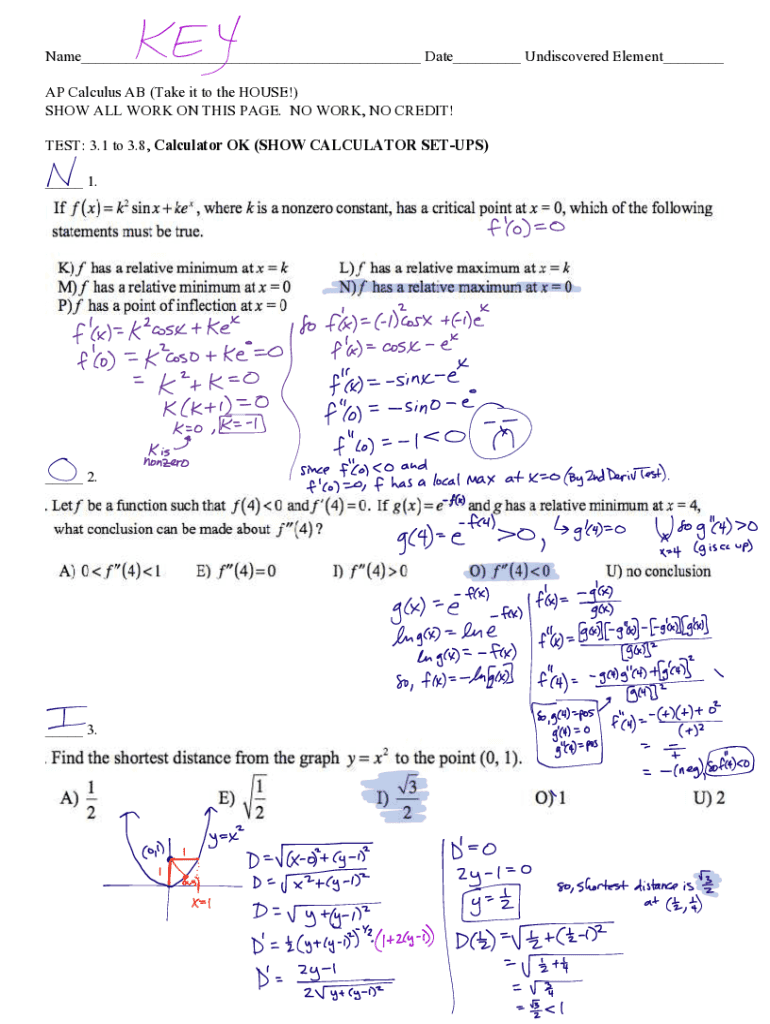 KEY
Name____________________ Date________ Undiscovered Element________
AP Calculus AB (Take it to the HOUSE!)
SHOW ALL WORK ON THIS PAGE. NO WORK, NO CREDIT!
TEST: 3.1 to 3.8, Calculator OK (SHOW CALCULATOR SET-UPS)
N 1.
If f(x) = k² sin x + ke^x, where k is a nonzero constant, has a critical point at x = 0, which of the following
statements must be true.
f'(0)=0
K) f has a relative minimum at x = k
L) f has a relative maximum at x = k
M) f has a relative minimum at x = 0
N) f has a relative maximum at x = 0
P) f has a point of inflection at x = 0
f'(x) = k²cosx + ke^x
f'(0) = k²cos0 + ke° = 0
= k² + k = 0
k(k+1) = 0
k=0, k=-1
k is
nonzero
So f'(x) = (-1)²cosx + (-1)e^x
f'(x) = cosx - e^x
f''(x) = -sinx - e^x
f''(0) = -sin0 - e°
f''(0) = -1 < 0
since f''(0)<0 and
f'(0)=0, f has a local max at x=0 (By 2nd Deriv Test).
O 2.
. Let f be a function such that f(4) < 0 and f'(4) = 0. If g(x) = e^-f(x) and g has a relative minimum at x = 4,
what conclusion can be made about f''(4)?
g(4) = e^-f(4) > 0, ↳ g'(4)=0
x=4
so g''(4)>0
(g is cc up)
A) 0 < f''(4) < 1 E) f''(4) = 0 I) f''(4) > 0 O) f''(4) < 0 U) no conclusion
g(x) = e^-f(x)
ln g(x) = ln e^-f(x)
ln g(x) = -f(x)
so, f(x) = -ln[g(x)]
f'(x) = -g'(x)/g(x)
f''(x) = [g(x)][-g''(x)]-[-g'(x)][g'(x)]/[g(x)]²
f''(4) = -g(4)g''(4)+[g'(4)]²/[g(4)]²
So, g(4)=pos
g'(4)=0
g''(4)=pos
f''(4) = -(+)(+)+0²/(+)²
= -/+
= -(neg), So f''(4)<0
I 3.
. Find the shortest distance from the graph y = x² to the point (0, 1).
A) 1/2 E) √1/2 I) √3/2 O) 1 U) 2
y=x²
(0,1)
1
1
x=1
D = √(x-0)²+(y-1)²
D = √x²+(y-1)²
D = √y+(y-1)²
D' = ½(y+(y-1)²)^-½·(1+2(y-1))
D' = 2y-1/2√y+(y-1)²
D' = 0
2y-1=0
y = ½
D(½) = √½+(½-1)²
= √½+¼
= √¾
= √3/2 < 1
so, shortest distance is √3/2
at (½, ¼)